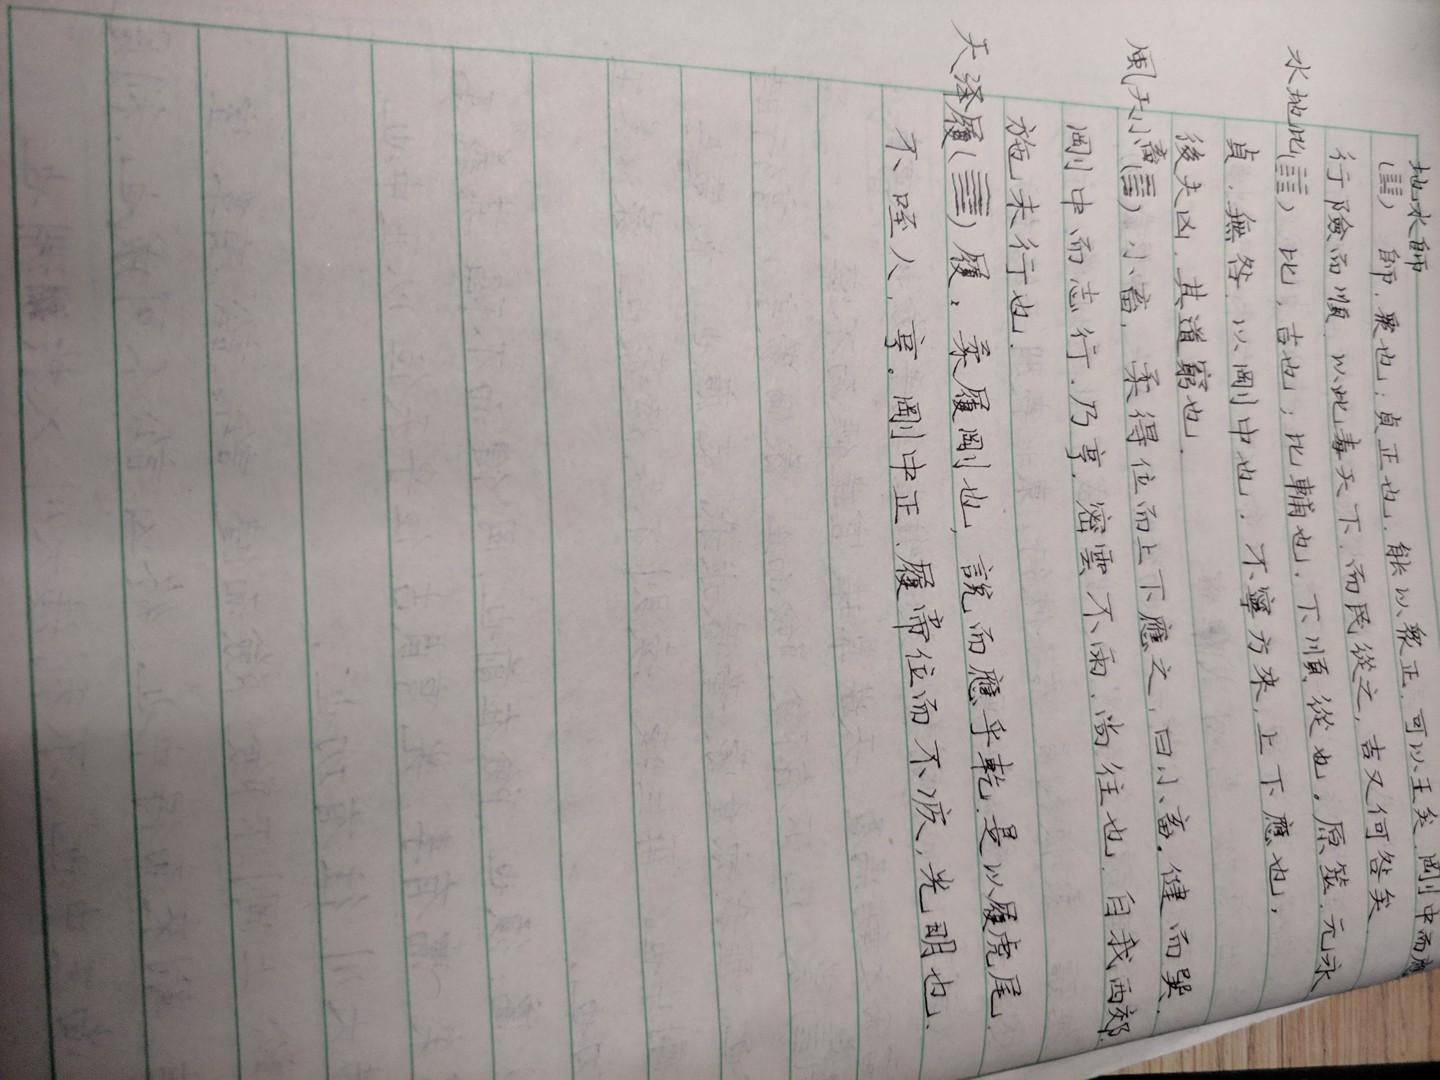 地水師
(䷆) 師，眾也；貞正也，能以眾正，可以王矣，剛中而應
行險而順，以此毒天下，而民從之，吉又何咎矣
水地比(䷇) 比，吉也；比輔也，下順從也。原筮，元永
貞，無咎，以剛中也，不寧方來，上下應也，
後夫凶，其道窮也，
風天小畜(䷈) 小畜，柔得位而上下應之，曰小畜，健而巽，
剛中而志行，乃亨，密雲不雨，尚往也，自我西郊，
施未行也，
天澤履(䷉) 履，柔履剛也，說而應乎乾，是以履虎尾，
不咥人，亨。剛中正，履帝位而不疚，光明也、